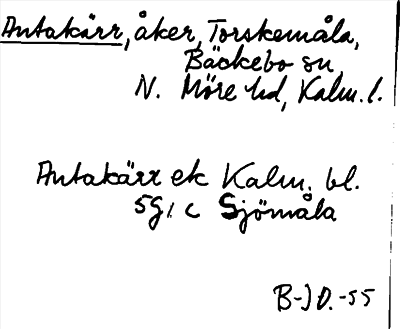 Antakärr, åker, Torskemåla,
Bäckebo sn
N. Möre hd, Kalm. l.
Antakärr ek Kalm. bl.
5g1 c Sjömåla
B-J D.-55